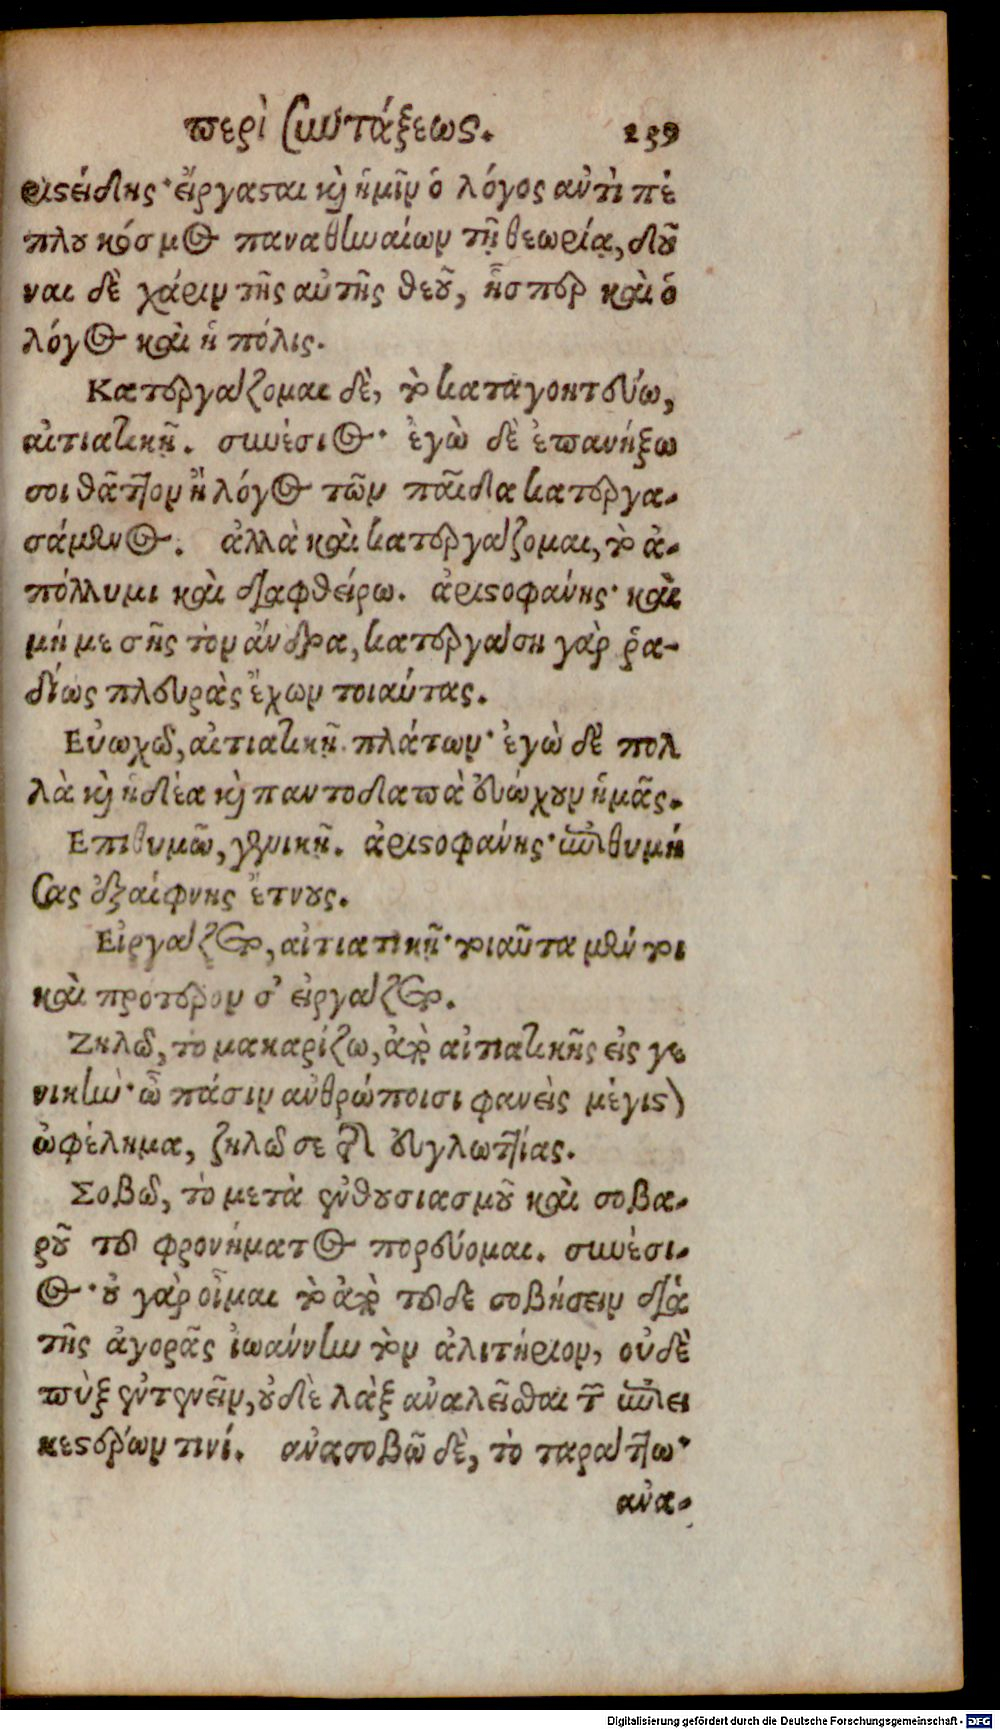 περὶ συντάξεως. 239
ριστείδης· εἴργασται καὶ ἡμῖν ὁ λόγος αὐτὶ πέ
πλου κόσμος παναθηναίων τῇ θεωρίᾳ, δοῦ
ναι δὲ χάριν τῆς αὐτῆς θεοῦ, ἧσπερ καὶ ὁ
λόγος καὶ ἡ πόλις.
Κατεργάζομαι δὲ, τὸ καταγοητεύω,
αἰτιατικῇ. συνέσιος· ἐγὼ δὲ ἐπανήξω
σοι θᾶττον ἢ λόγος τῶν παῖδα κατεργα-
σάμενος. ἀλλὰ καὶ κατεργάζομαι, τὸ ἀ-
πόλλυμι καὶ διαφθείρω. ἀριστοφάνης· καὶ
μή με σῆς τὸν ἄνδρα, κατεργάση γὰρ ῥα-
δίως πλευρὰς ἔχων τοιαύτας.
Εὐωχῶ, αἰτιατικῇ. πλάτων· ἐγὼ δὲ πολ
λὰ καὶ ἡδέα καὶ παντοδαπὰ εὐώχουν ἡμᾶς.
Επιθυμῶ, γενικῇ. ἀριστοφάνης· ἐπιθυμή
σας ἐξαίφνης ἔτνους.
Εἰργάζετο, αἰτιατικῇ· τοιαῦτα μέν τοι
καὶ πρότερον σ' εἰργάζετο.
Ζηλῶ, το μακαρίζω, ἀπὸ αἰτιατικῆς εἰς γε
νικὴν· ὦ πάσιν ἀνθρώποισι φανεὶς μέγιστον
ὠφέλημα, ζηλῶ σε τῆς εὐγλωττίας.
Σοβῶ, τὸ μετὰ ἐνθουσιασμοῦ καὶ σοβα-
ροῦ τοῦ φρονήματος πορεύομαι. συνέσι-
ος· οὐ γὰρ οἶμαι τὸ ἀπὸ τοῦδε σοβήσειν διὰ
τῆς ἀγορᾶς ἰωάννην τὸν ἀλιτήριον, οὐδὲ
πὺξ ἐντενεῖν, οὐδὲ λὰξ ἐναλεῖσθαι τῶν ἐπιει
κεστέρων τινί. ἀνασοβῶ δὲ, τὸ ταράττω·
ἀνα-
Digitalisierung gefördert durch die Deutsche Forschungsgemeinschaft - DFG